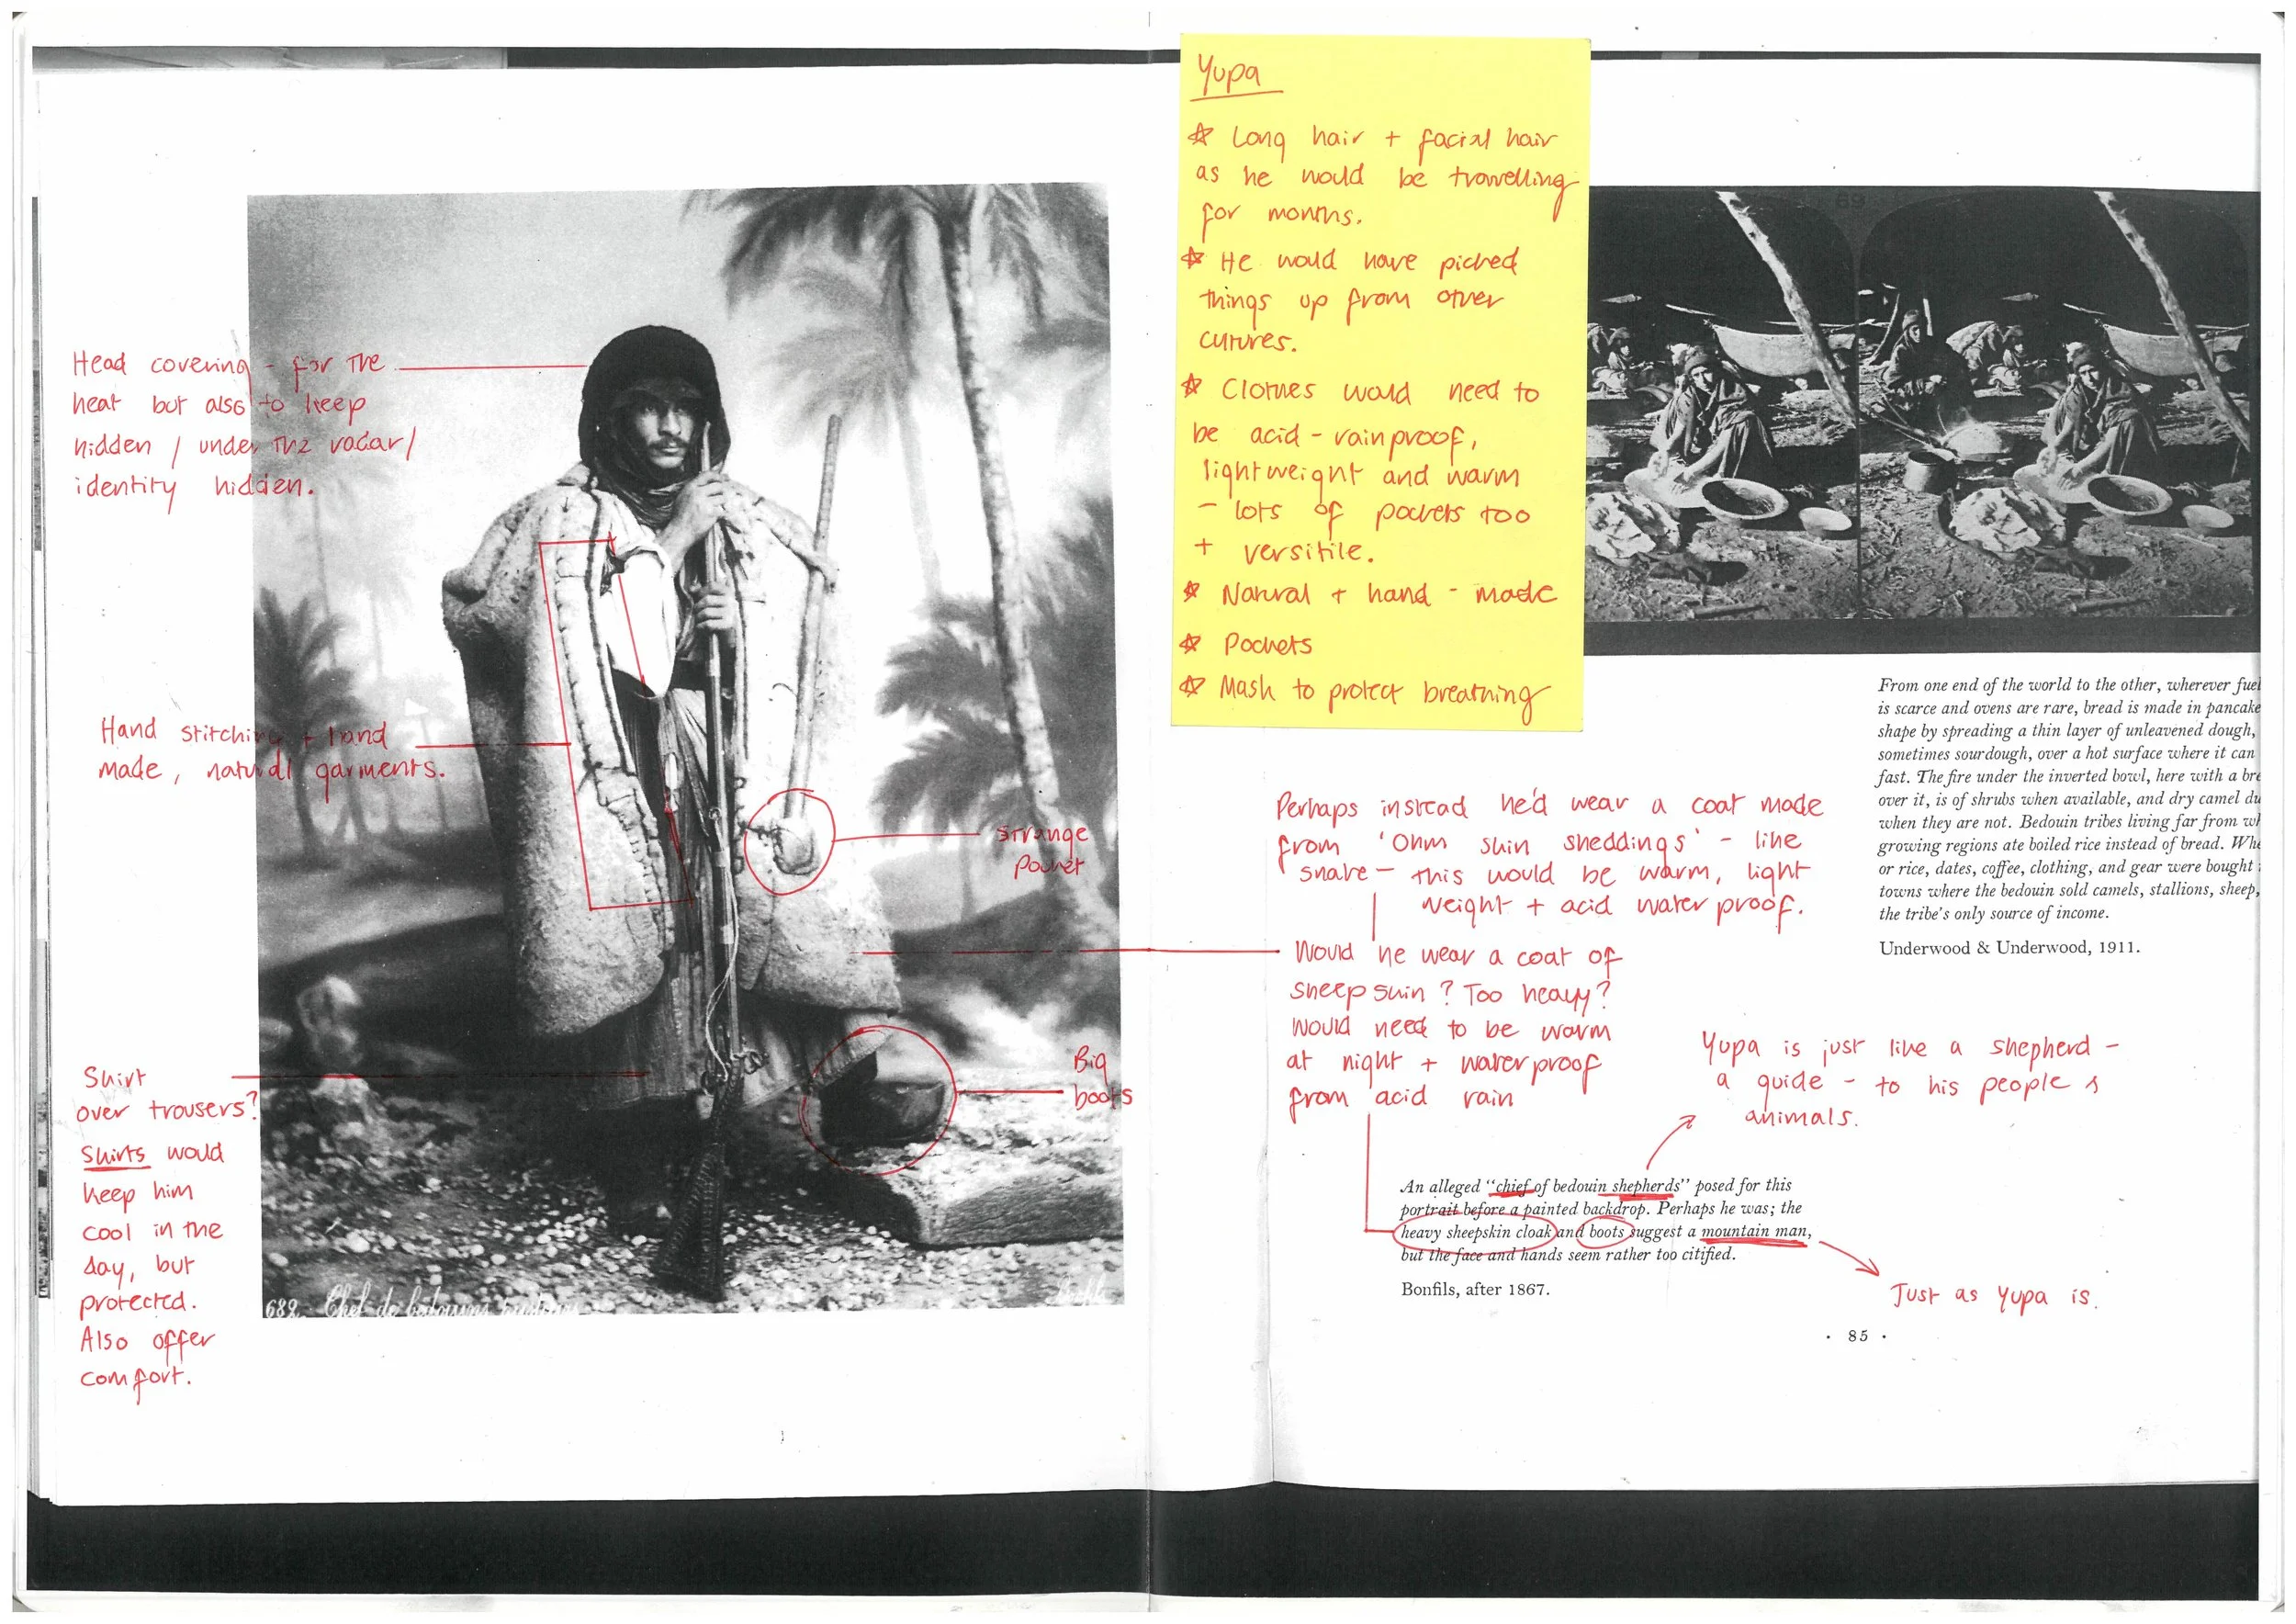 Yupa
☆ Long hair + facial hair
as he would be travelling
for months.
☆ He would have picked
things up from other
cutures.
☆ Clothes would need to
be acid-rainproof,
lightweight and warm
- lots of pockets too
+ versitile.
☆ Natural + hand-made
☆ Pockets
☆ Mask to protect breathing
Head covering - for the
heat but also to keep
hidden / under the radar /
identity hidden.
Hand stitching + hand
made, natural garments.
strange
pocket
Big
boots
Skirt
over trousers?
Skirts would
keep him
cool in the
day, but
protected.
Also offer
comfort.
689. Chef de bédouins
Perhaps instead he'd wear a coat made
from 'Ohm skin sheddings' - like
snake - this would be warm, light
weight + acid water proof.
Would he wear a coat of
sheep skin? Too heavy?
Would need to be warm
at night + waterproof
from acid rain
From one end of the world to the other, wherever fuel
is scarce and ovens are rare, bread is made in pancake
shape by spreading a thin layer of unleavened dough,
sometimes sourdough, over a hot surface where it can
fast. The fire under the inverted bowl, here with a bre
over it, is of shrubs when available, and dry camel du
when they are not. Bedouin tribes living far from wh
growing regions ate boiled rice instead of bread. Whe
or rice, dates, coffee, clothing, and gear were bought
towns where the bedouin sold camels, stallions, sheep,
the tribe's only source of income.
Underwood & Underwood, 1911.
Yupa is just like a shepherd -
a guide - to his people &
animals.
An alleged "chief of bedouin shepherds" posed for this
portrait before a painted backdrop. Perhaps he was; the
heavy sheepskin cloak and boots suggest a mountain man,
but the face and hands seem rather too citified.
Bonfils, after 1867.
Just as Yupa is.
· 85 ·